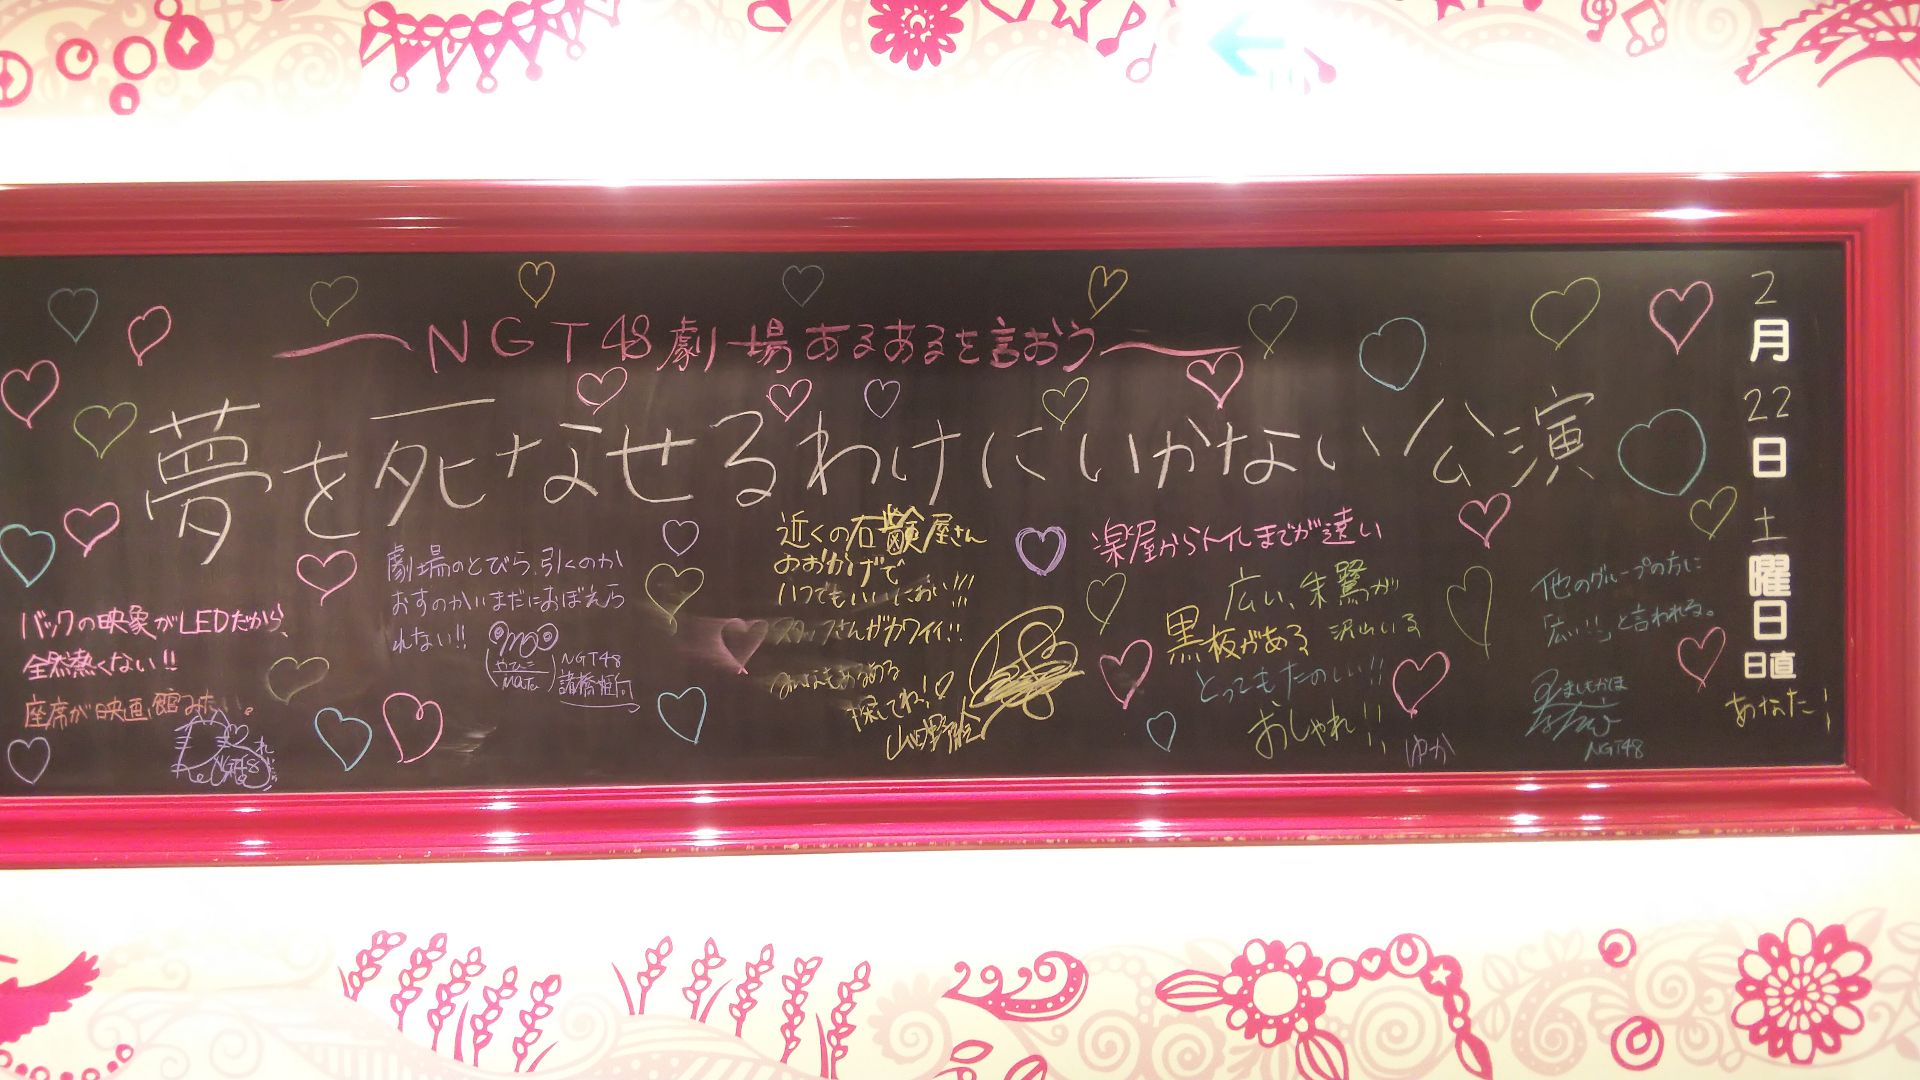 NGT48劇場あるあるを言おう
夢を死なせるわけにいかない公演
バックの映象がLEDだから、
全然熱くない!!
座席が映画館みたい。
NGT48
劇場のとびら、引くのか
おすのかいまだにおぼえら
れない!!
NGT48
諸橋姫向
近くの石鹸屋さん
おおかげで
いつでもいいにおい!!!
スタッフさんがカワイイ!!
みんなもあるある
探してね!♡
楽屋からトイレまでが遠い
広い、朱鷺が
沢山いる
黒板がある
とってもたのしい!!
おしゃれ!!
ゆか
他のグループの方に
「広い!!」と言われる。
ましもかほ
NGT48
2
月
22
日
土
曜
日
日直
あなた!